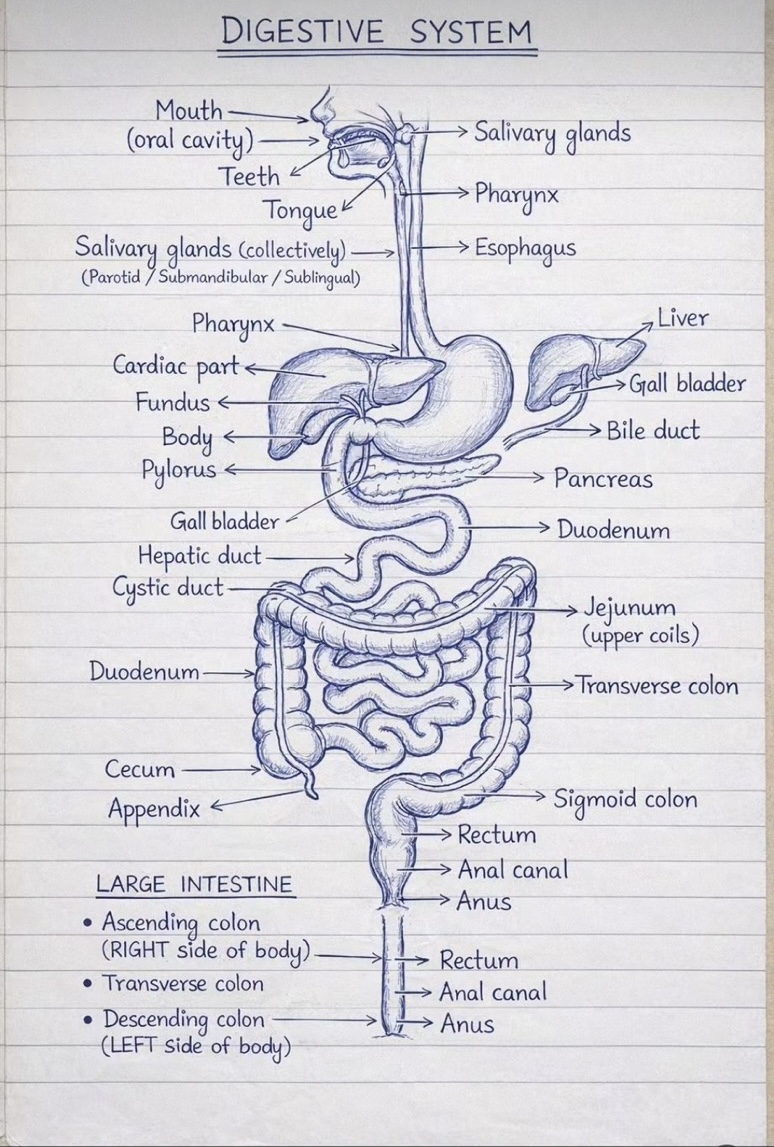 DIGESTIVE SYSTEM
Mouth
(oral cavity)
Salivary glands
Teeth
Tongue
Pharynx
Salivary glands (collectively)
(Parotid / Submandibular / Sublingual)
Esophagus
Pharynx
Liver
Cardiac part
Gall bladder
Fundus
Body
Bile duct
Pylorus
Pancreas
Gall bladder
Duodenum
Hepatic duct
Cystic duct
Jejunum
(upper coils)
Duodenum
Transverse colon
Cecum
Appendix
Sigmoid colon
Rectum
Anal canal
Anus
LARGE INTESTINE
• Ascending colon
(RIGHT side of body)
• Transverse colon
• Descending colon
(LEFT side of body)
Rectum
Anal canal
Anus